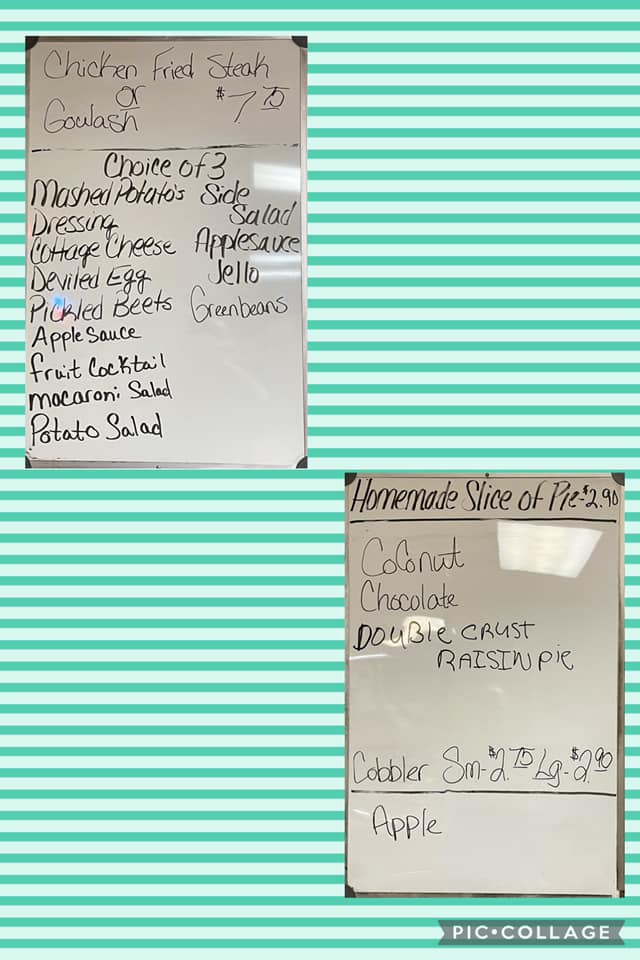 Chicken Fried Steak
or
Goulash $7.75
Choice of 3
Mashed Potato's
Dressing
Cottage Cheese
Deviled Egg
Pickled Beets
Apple Sauce
fruit Cocktail
macaroni Salad
Potato Salad
Side
Salad
Applesauce
Jello
Greenbeans
Homemade Slice of Pie-$2.90
Coconut
Chocolate
DOUBLE CRUST
RAISIN PIE
Cobbler Sm-$2.75 Lg-$2.90
Apple
PIC•COLLAGE